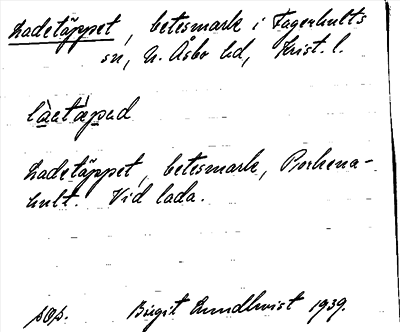 Ladetäppet, betesmark i Fagerhults
sn, N. Åsbo hd, Krist. l.
làetäped
Ladetäppet, betesmark, Porkena-
hult. Vid lada.
sop. Birgit Lundkvist 1939.